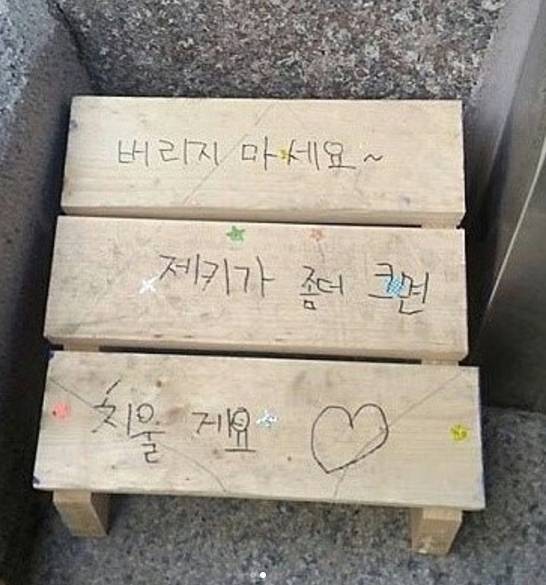 버리지 마세요~
제키가 좀더 크면
치울 게요